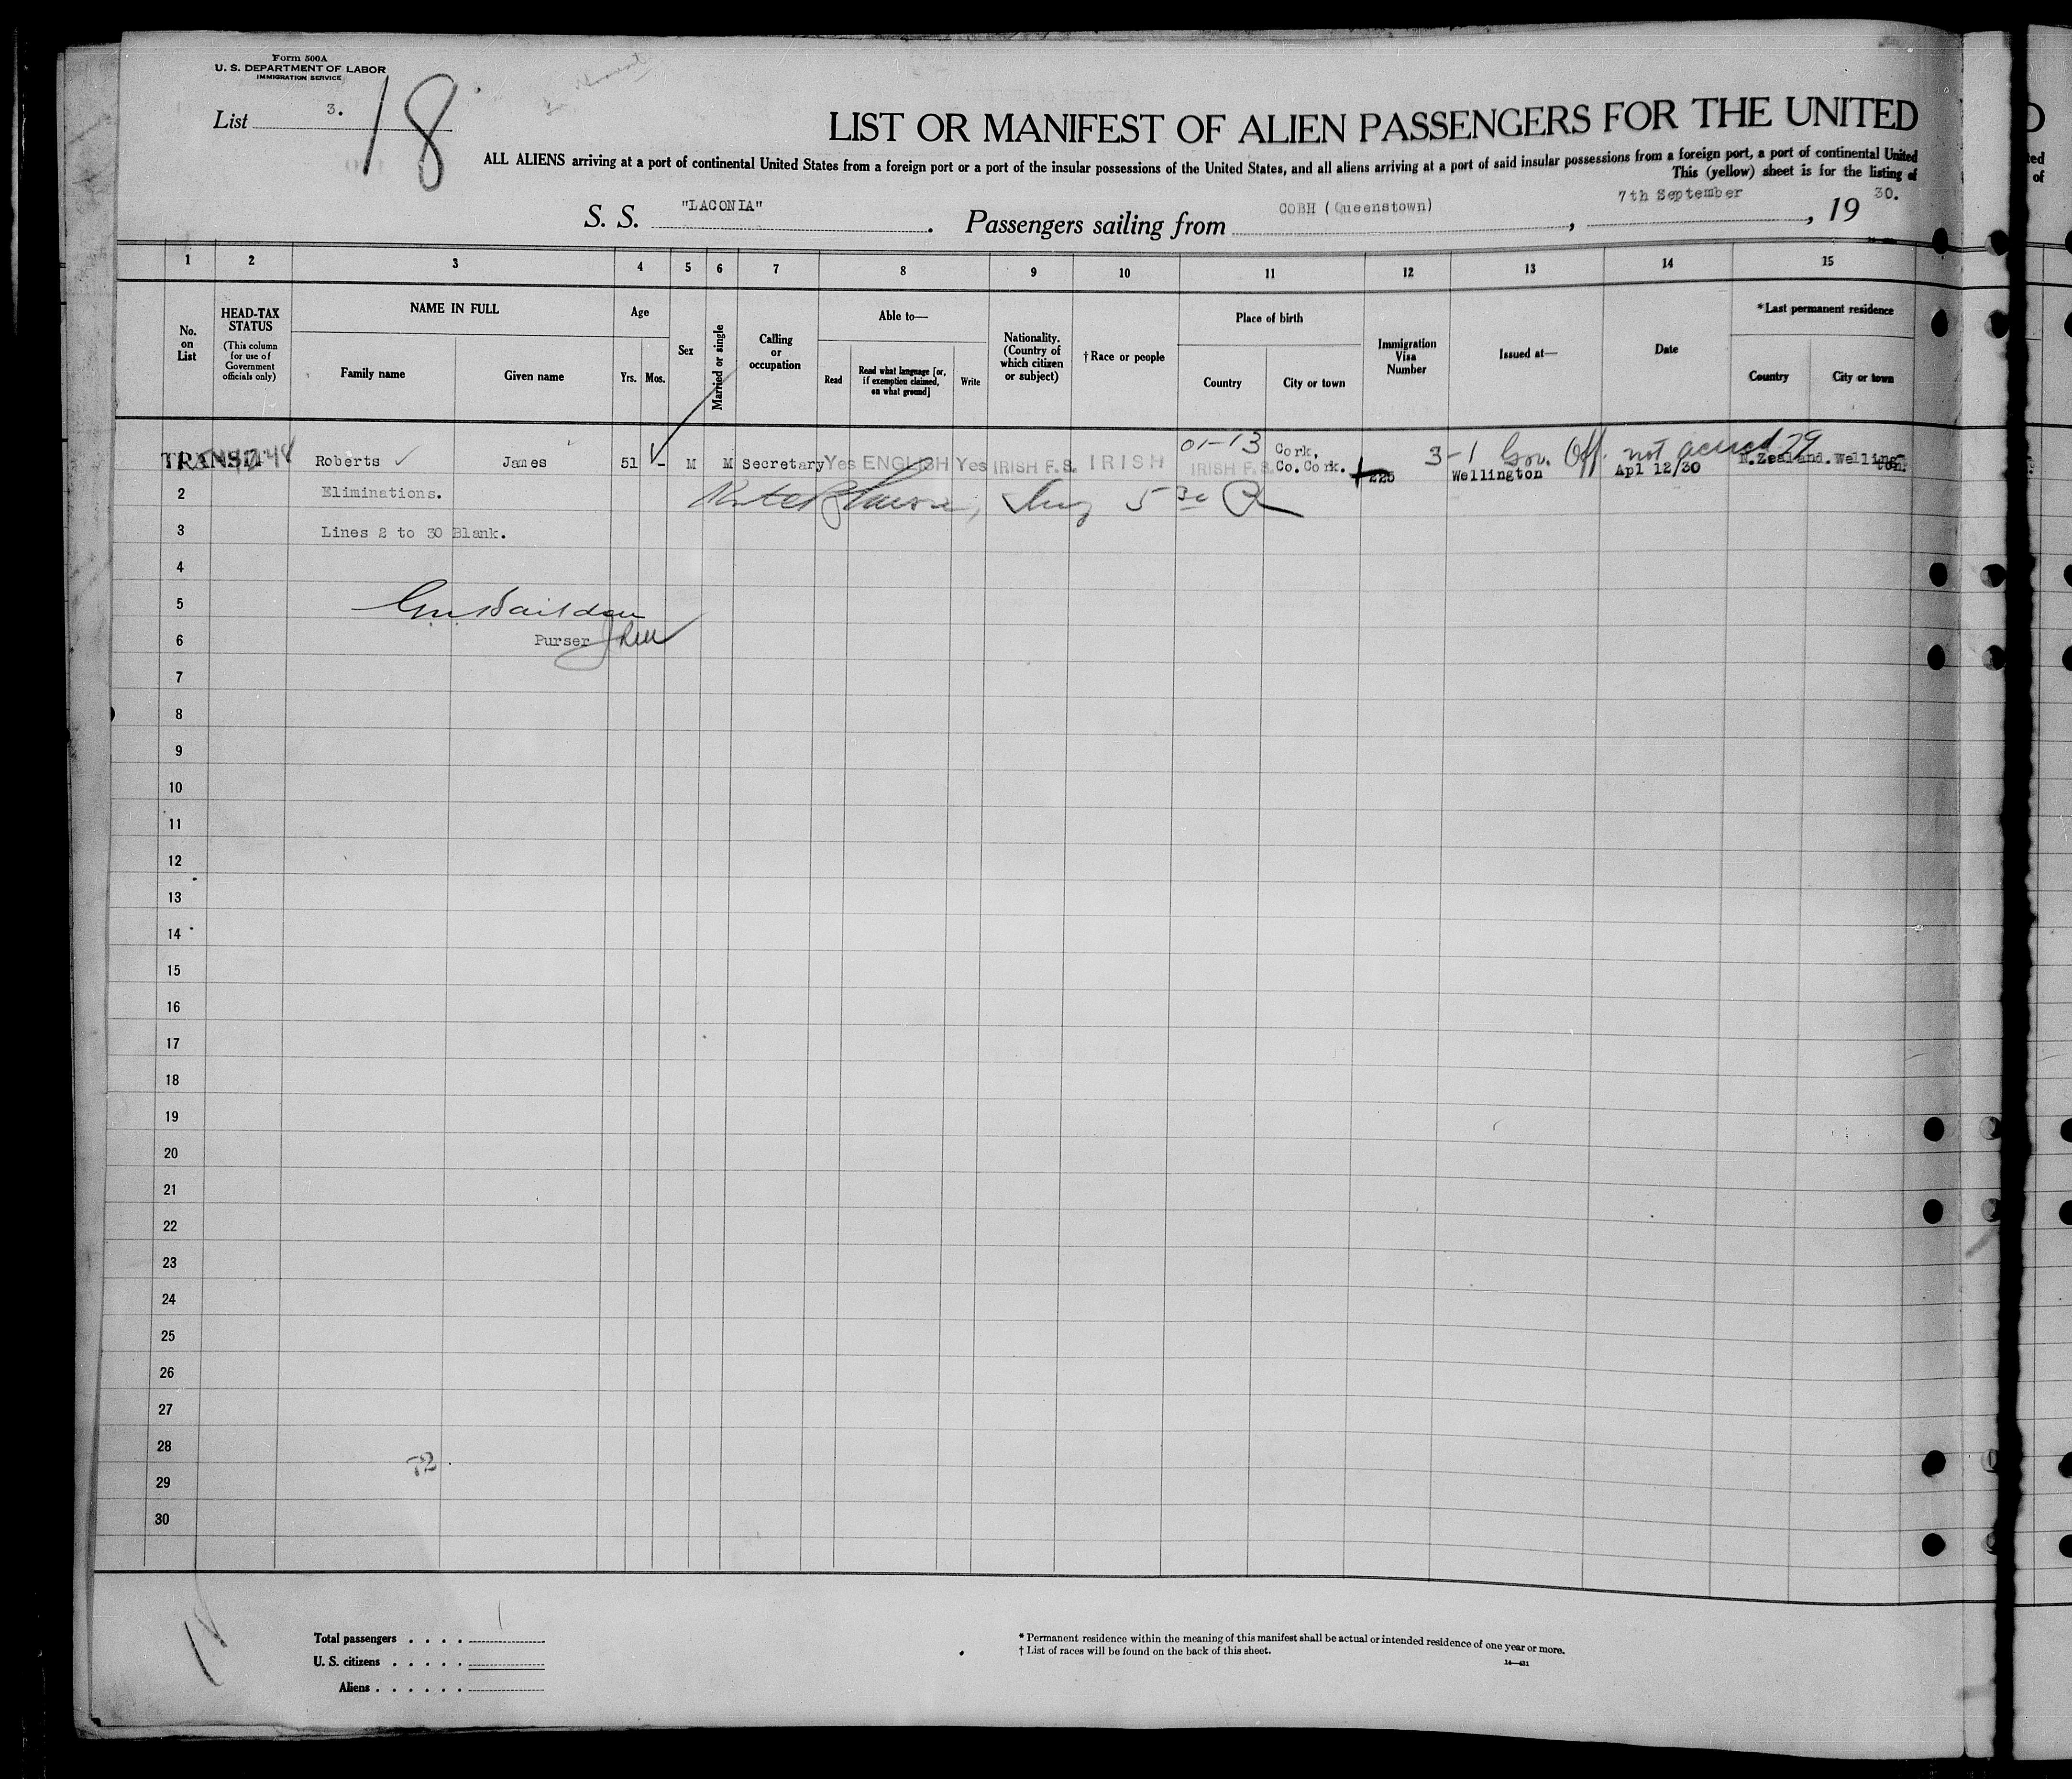 Form 500A
U. S. DEPARTMENT OF LABOR
IMMIGRATION SERVICE
List 3.
18
LIST OR MANIFEST OF ALIEN PASSENGERS FOR THE UNITED
ALL ALIENS arriving at a port of continental United States from a foreign port or a port of the insular possessions of the United States, and all aliens arriving at a port of said insular possessions from a foreign port, a port of continental United
This (yellow) sheet is for the listing of
S. S. "LACONIA". Passengers sailing from COBH (Queenstown), 7th September, 19 30.
1 2 3 4 5 6 7 8 9 10 11 12 13 14 15
No. on List
HEAD-TAX STATUS
(This column for use of Government officials only)
NAME IN FULL
Family name
Given name
Age
Yrs.
Mos.
Sex
Married or single
Calling or occupation
Able to—
Read
Read what language [or, if exemption claimed, on what ground]
Write
Nationality. (Country of which citizen or subject)
†Race or people
Place of birth
Country
City or town
Immigration Visa Number
Issued at—
Date
*Last permanent residence
Country
City or town
01-13 3-1 Gov. Off. not accred 29
TRANSIT Roberts James 51 - M M Secretary Yes ENGLISH Yes IRISH F.S. IRISH IRISH F.S. Cork, Co.Cork. 225 Wellington Apl 12/30 N.Zealand. Wellington.
2 Eliminations.
3 Lines 2 to 30 Blank.
4
5
6 Purser
7
8
9
10
11
12
13
14
15
16
17
18
19
20
21
22
23
24
25
26
27
28
29
30
Total passengers . . . . 1
U. S. citizens . . . . .
Aliens . . . . . .
* Permanent residence within the meaning of this manifest shall be actual or intended residence of one year or more.
† List of races will be found on the back of this sheet.